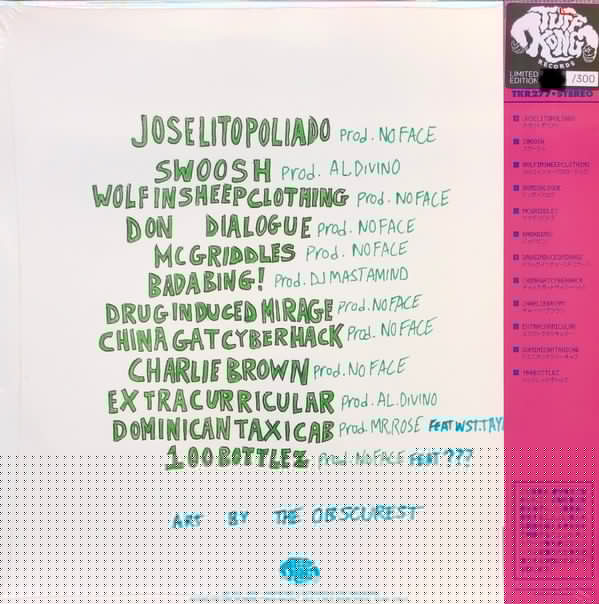 JOSELITOPOLIADO prod. NO FACE
SWOOSH prod. AL DIVINO
WOLFINSHEEPCLOTHING prod. NO FACE
DON DIALOGUE prod. NO FACE
MCGRIDDLES prod. NO FACE
BADABING! prod. DJ MASTAMIND
DRUG INDUCED MIRAGE prod. NO FACE
CHINAGATCYBERHACK prod. NO FACE
CHARLIE BROWN prod. NO FACE
EXTRACURRICULAR prod. AL.DIVINO
DOMINICAN TAXICAB prod. MR.ROSE FEAT WST.TAY
100 BOTTLEZ prod. NO FACE FEAT ???
ART BY THE OBSCUREST
TUFF KONG
RECORDS
LIMITED
EDITION /300
TKR277 • STEREO
JOSELITOPOLIADO
SWOOSH
WOLFINSHEEPCLOTHING
DON DIALOGUE
MCGRIDDLES
BADABING!
DRUG INDUCED MIRAGE
CHINAGATCYBERHACK
CHARLIE BROWN
EXTRACURRICULAR
DOMINICAN TAXICAB
100 BOTTLEZ